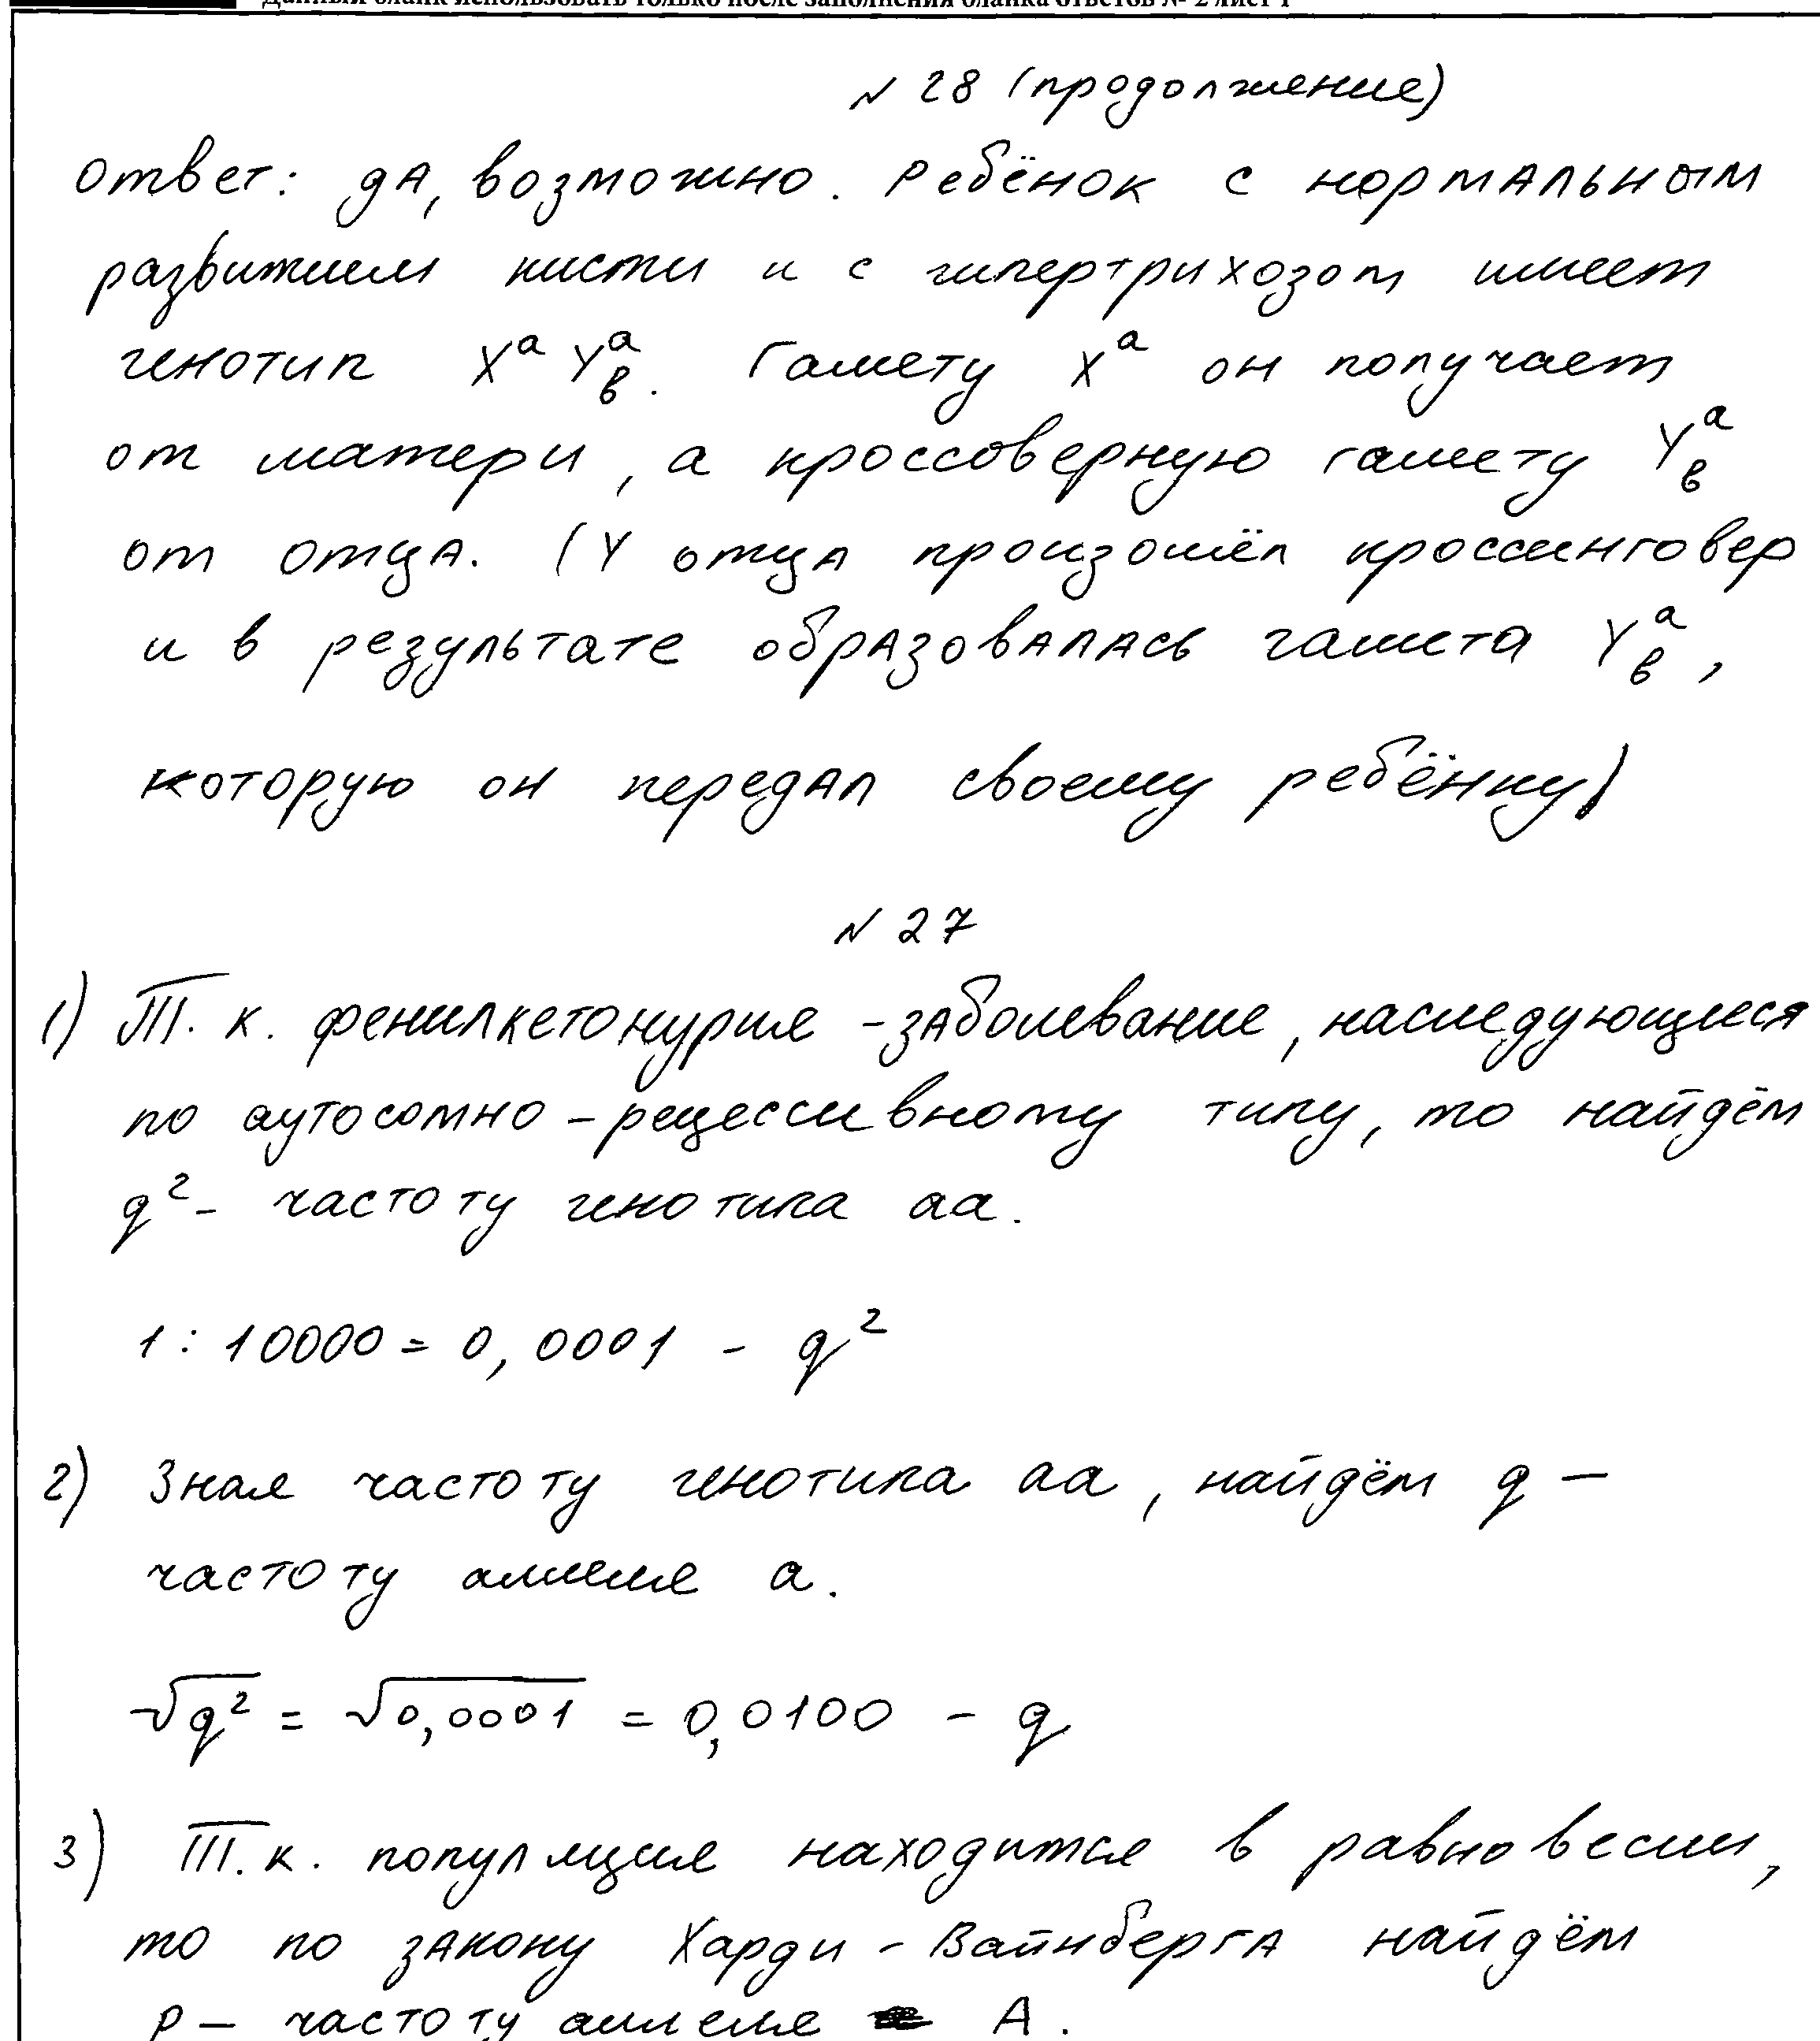 Данный бланк использовать только после заполнения бланка ответов № 2 лист 1
№ 28 (продолжение)
Ответ: да, возможно. Ребёнок с нормальным
развитием кисти и с гипертрихозом имеет
генотип Xᵃ Yᵃв. Гамету Xᵃ он получает
от матери, а кроссоверную гамету Yᵃв
от отца. (У отца произошёл кроссинговер
и в результате образовалась гамета Yᵃв,
которую он передал своему ребёнку)
№ 27
1) Т. к. фенилкетонурия - заболевание, наследующиеся
по аутосомно - рецессивному типу, то найдём
q² - частоту генотипа аа.
1 : 10000 = 0,0001 - q²
2) Зная частоту генотипа аа, найдём q —
частоту аллеля а.
√q² = √0,0001 = 0,0100 - q
3) Т. к. популяция находится в равновесии,
то по закону Харди - Вайнберга найдём
р — частоту аллеля А.